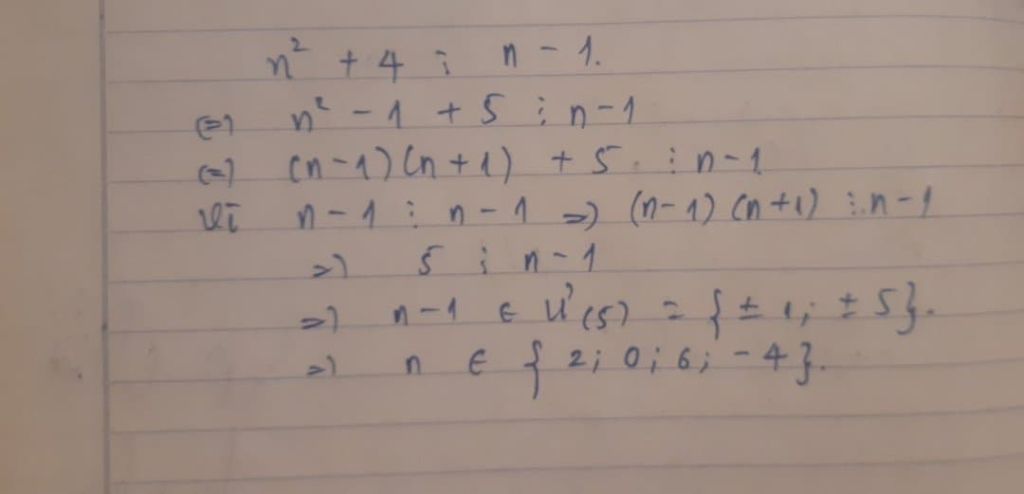 n² + 4 ⋮ n - 1.
(=) n² - 1 + 5 ⋮ n - 1
(=) (n - 1)(n + 1) + 5 ⋮ n - 1
Vì n - 1 ⋮ n - 1 =) (n - 1)(n + 1) ⋮ n - 1
=) 5 ⋮ n - 1
=) n - 1 ∈ Ư(5) = { ± 1; ± 5}.
=) n ∈ { 2; 0; 6; - 4}.